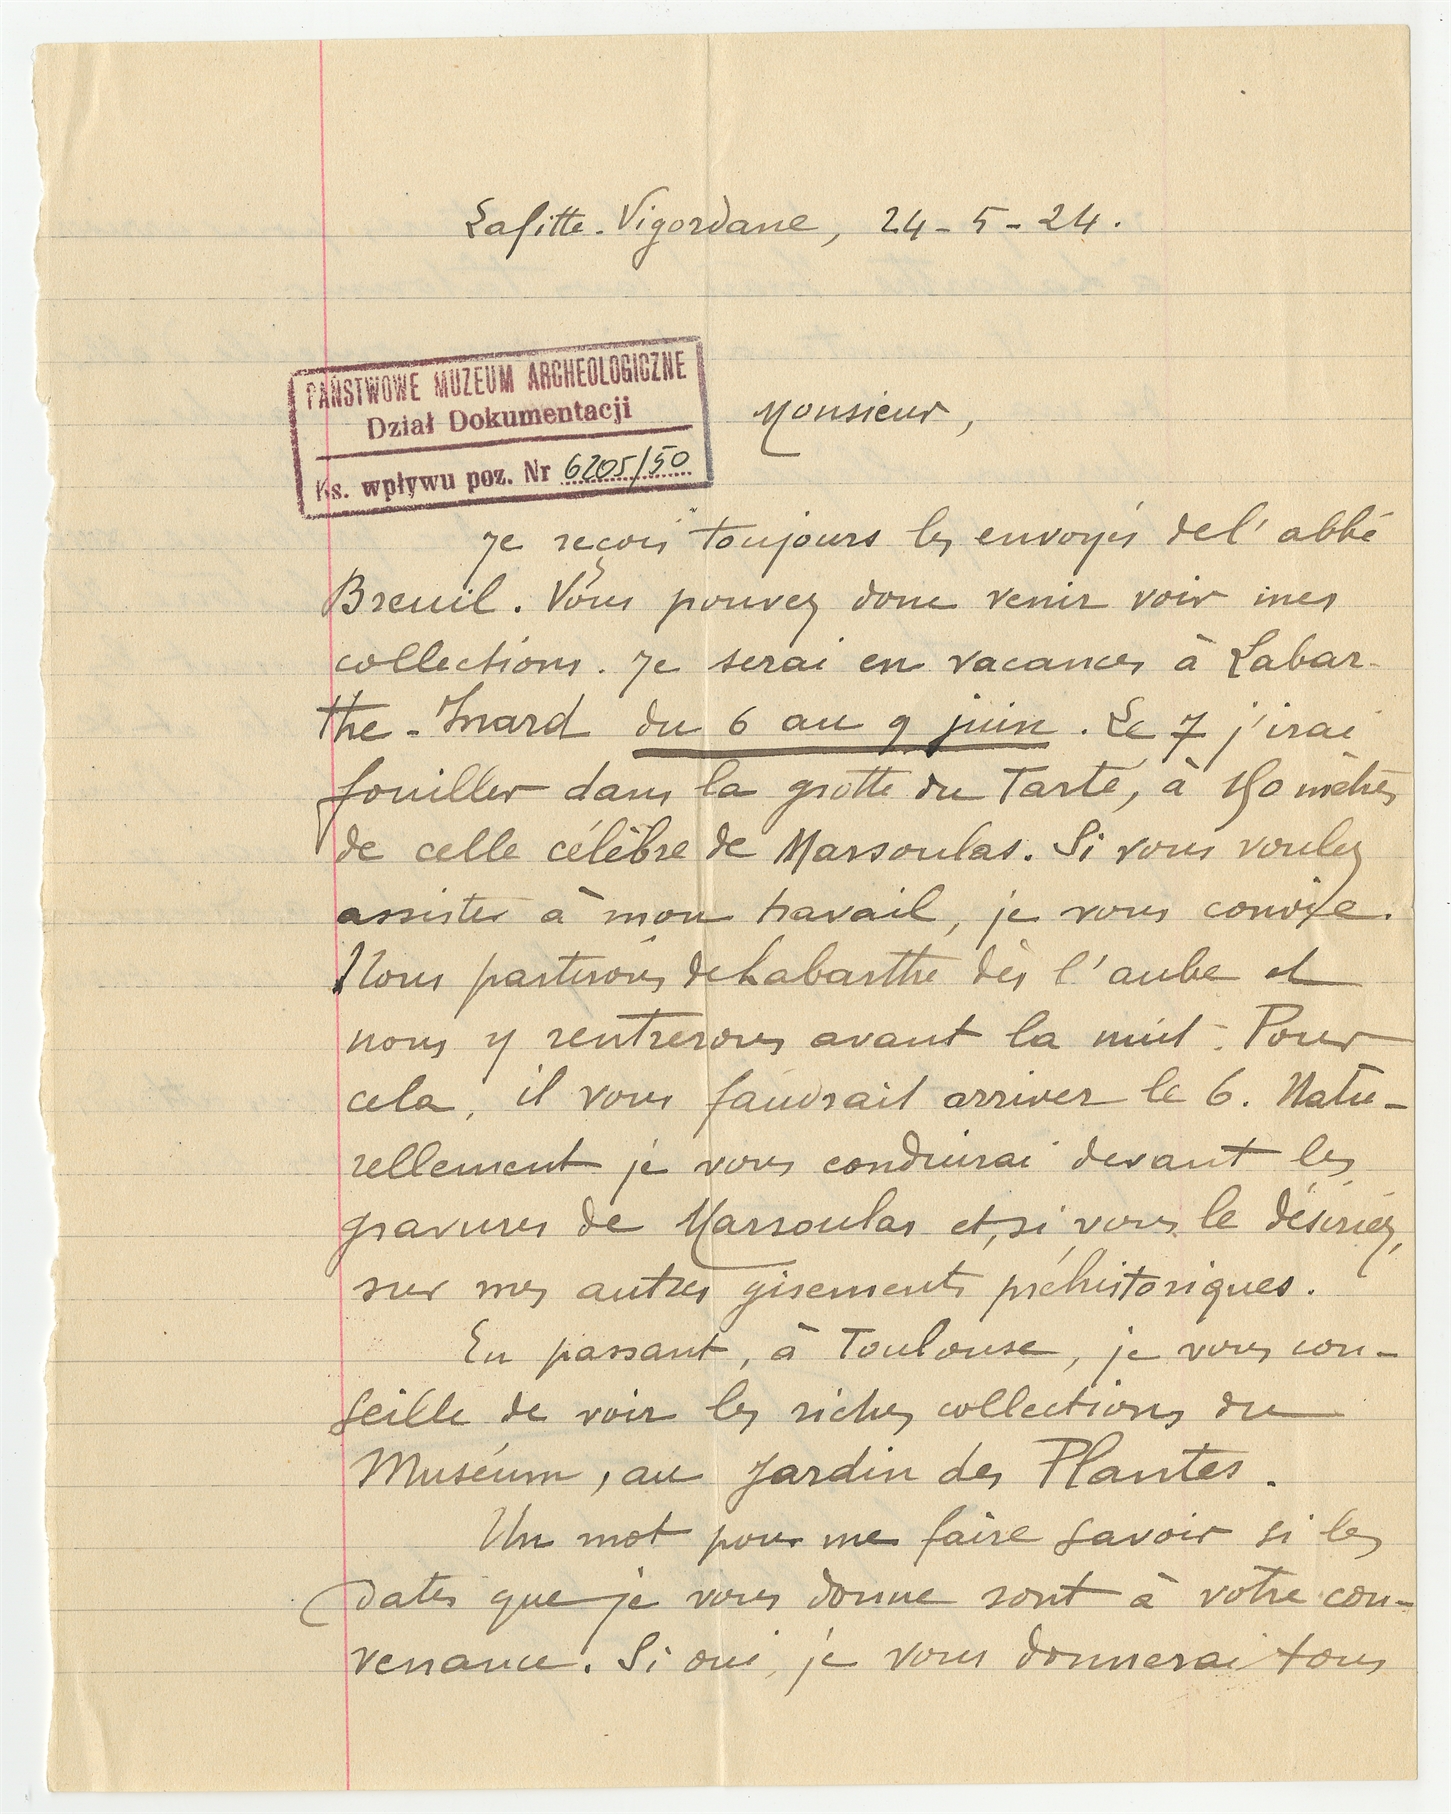 Lafitte-Vigordane, 24-5-24.
PAŃSTWOWE MUZEUM ARCHEOLOGICZNE
Dział Dokumentacji
Ks. wpływu poz. Nr 6205/50
Monsieur,
Je reçois toujours les envoyés de l'abbé
Breuil. Vous pouvez donc venir voir mes
collections. Je serai en vacances à Labar-
the-Inard du 6 au 9 juin. Le 7 j'irai
fouiller dans la grotte du Tarté, à 150 mètres
de celle célèbre de Marsoulas. Si vous voulez
assister à mon travail, je vous convie.
Nous partirons de Labarthe dès l'aube et
nous y rentrerons avant la nuit. Pour
cela, il vous faudrait arriver le 6. Natu-
rellement je vous conduirai devant les
gravures de Marsoulas et, si vous le désiriez,
sur mes autres gisements préhistoriques.
En passant, à Toulouse, je vous con-
seille de voir les riches collections du
Muséum, au Jardin des Plantes.
Un mot pour me faire savoir si les
dates que je vous donne sont à votre con-
venance. Si oui, je vous donnerai tous